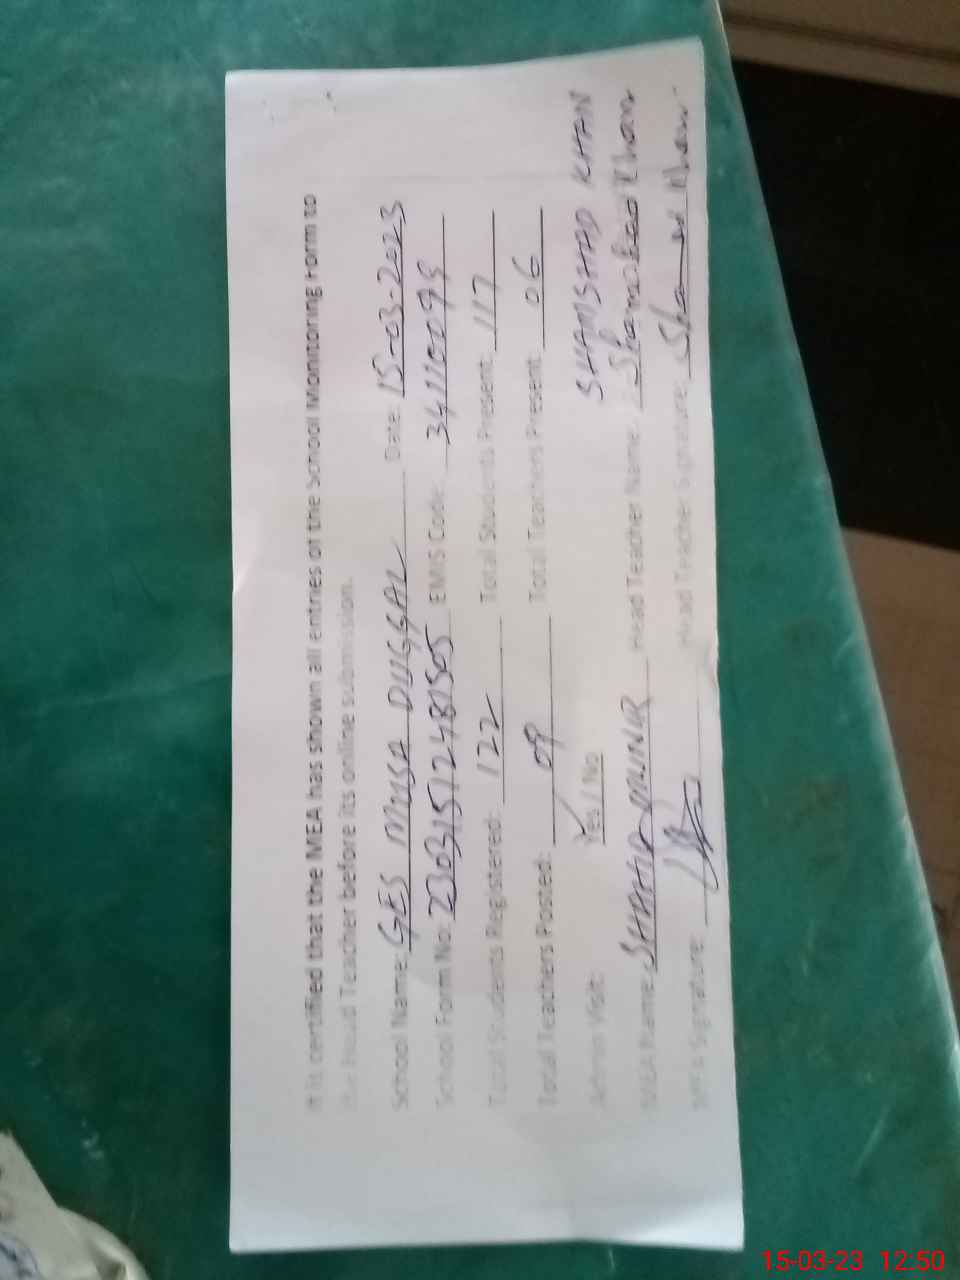 It is certified that the MEA has shown all entries of the School Monitoring Form to
the Head Teacher before its online submission.
School Name: GES MUSA DUGGAL Date: 15-03-2023
School Form No: 230315124B1505 EMIS Code: 34110098
Total Students Registered: 122 Total Students Present: 117
Total Teachers Posted: 09 Total Teachers Present 06
Admin Visit: Yes / No
SHAMSHAD KHAN
MEA Name: SHAHID MUNIR Head Teacher Name: Shamshad Khan
MEA Signature: Head Teacher Signature: Khan
15-03-23 12:50